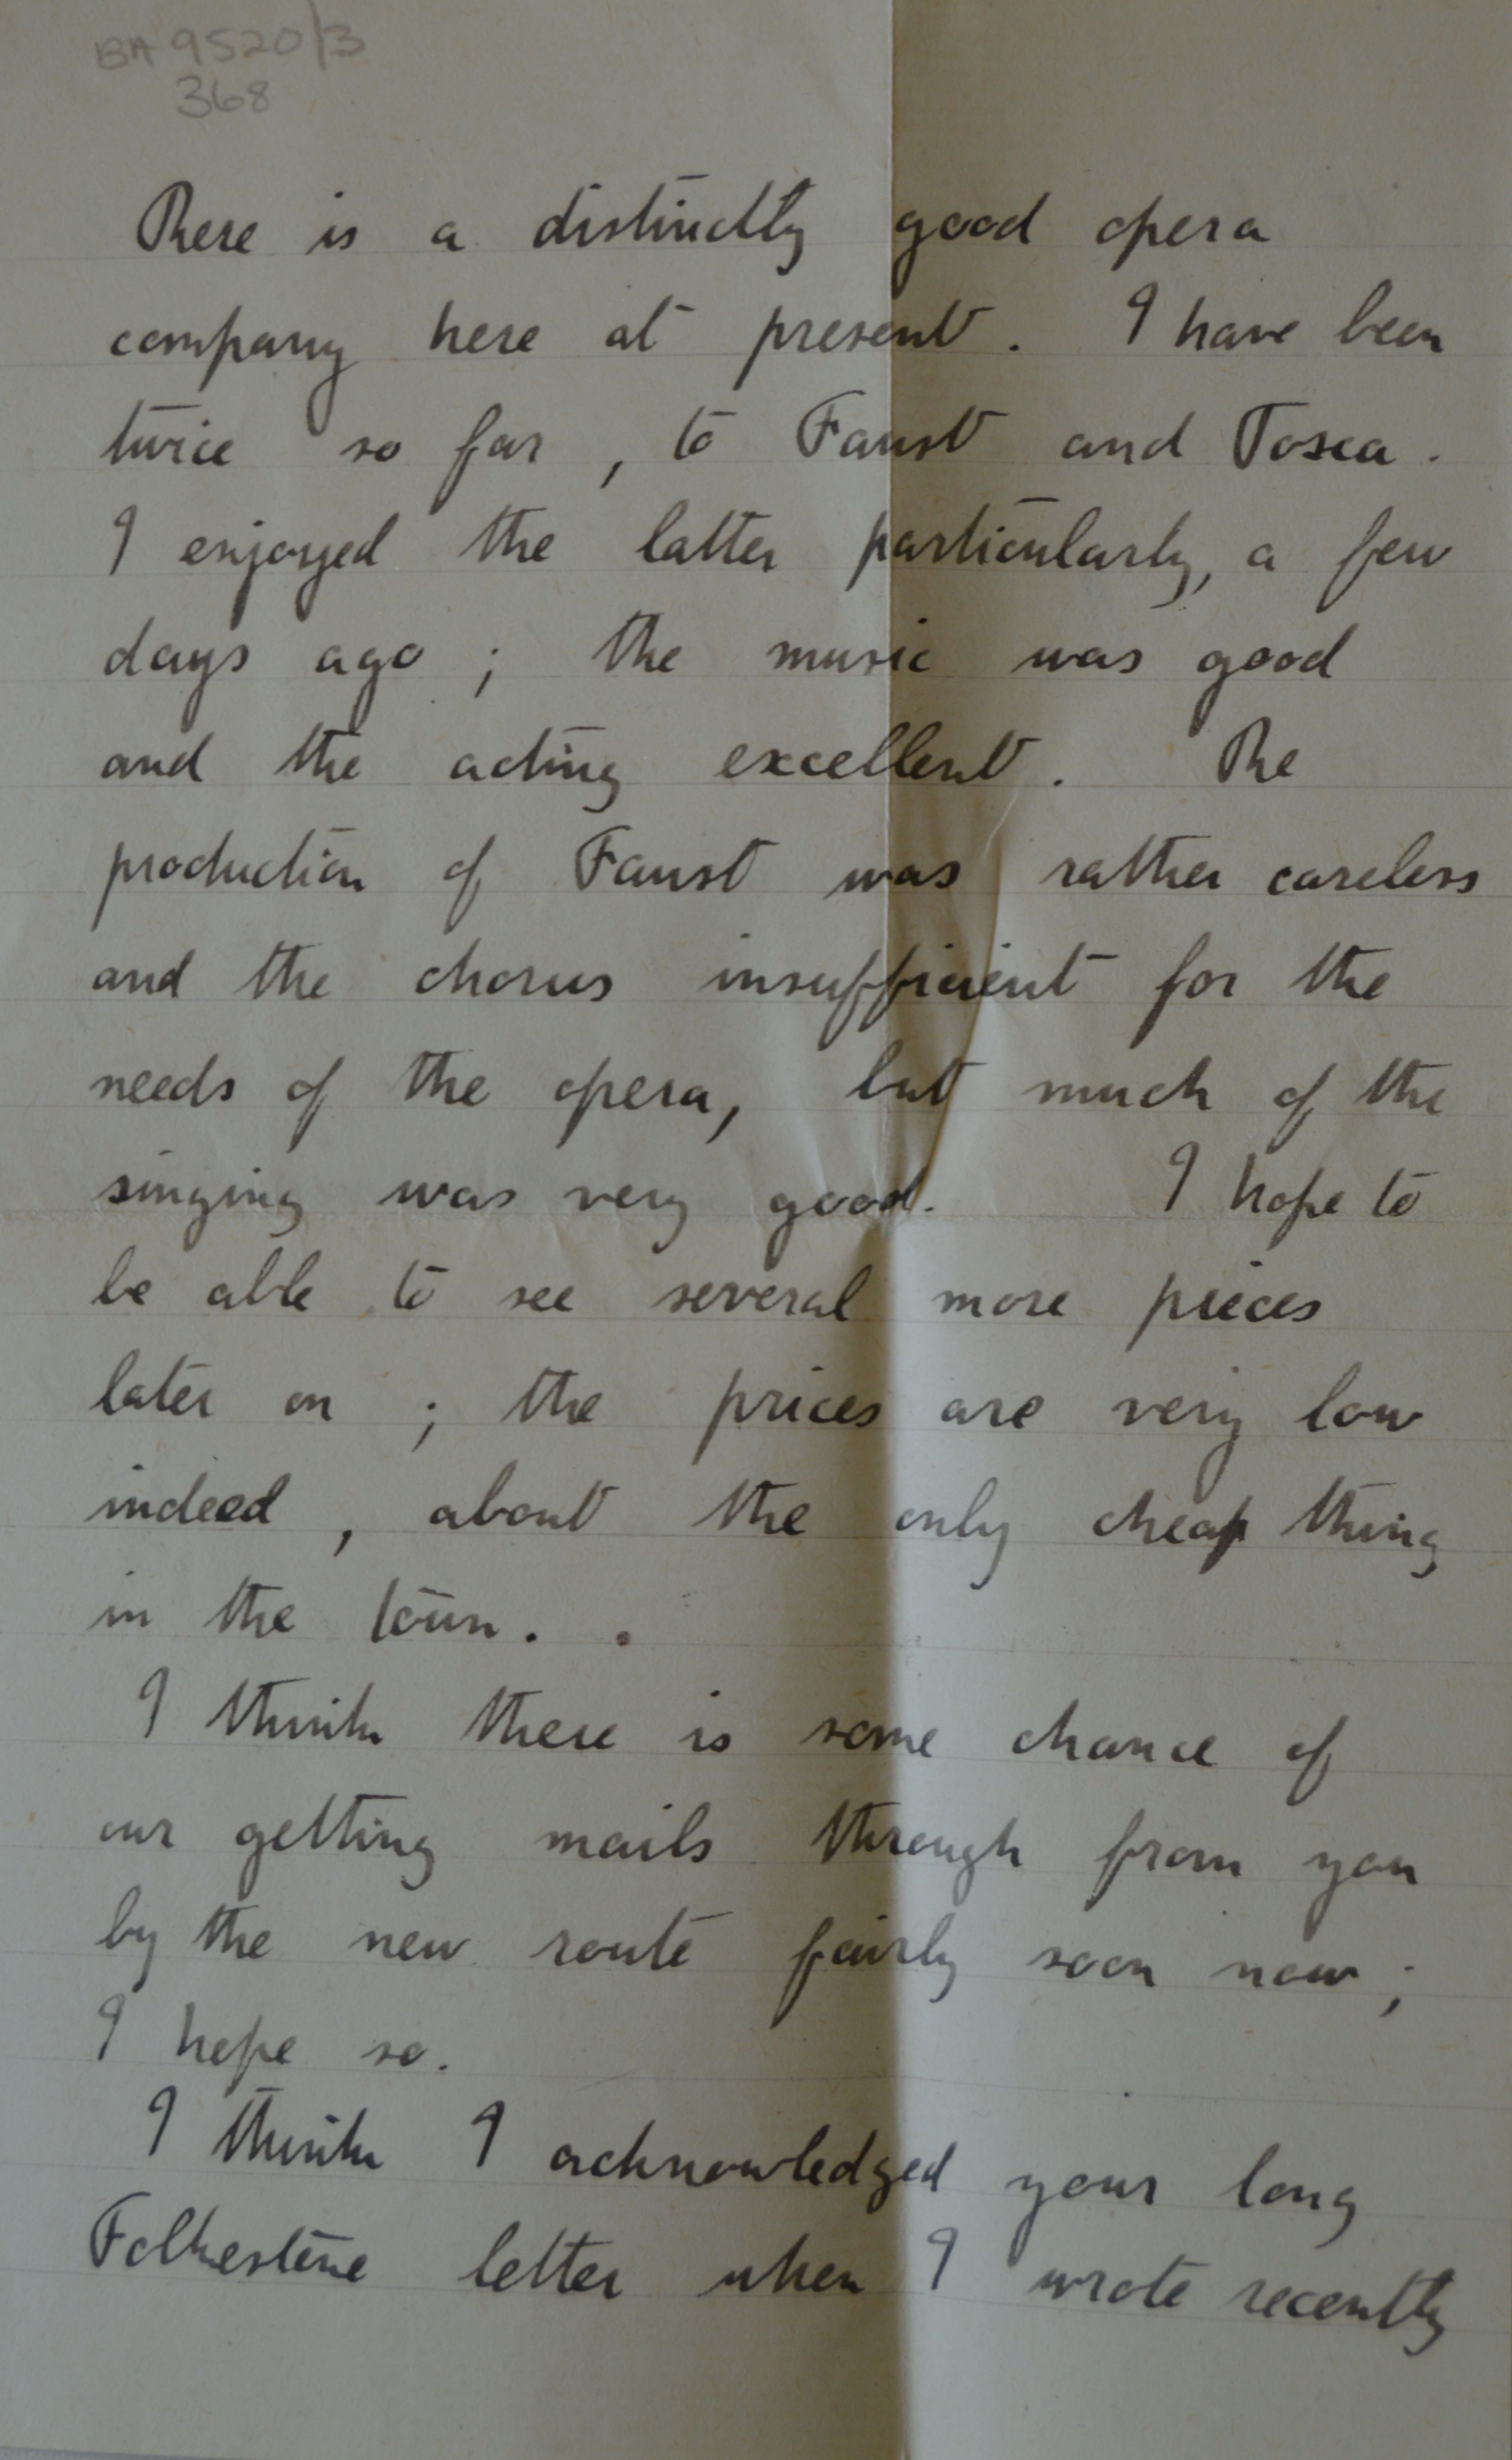 BA 9520/3
368
There is a distinctly good opera
company here at present. I have been
twice so far, to Faust and Tosca.
I enjoyed the latter particularly, a few
days ago; the music was good
and the acting excellent. The
production of Faust was rather careless
and the chorus insufficient for the
needs of the opera, but much of the
singing was very good. I hope to
be able to see several more pieces
later on; the prices are very low
indeed, about the only cheap thing
in the town.
I think there is some chance of
our getting mails through from you
by the new route fairly soon now;
I hope so.
I think I acknowledged your long
Folkestone letter when I wrote recently